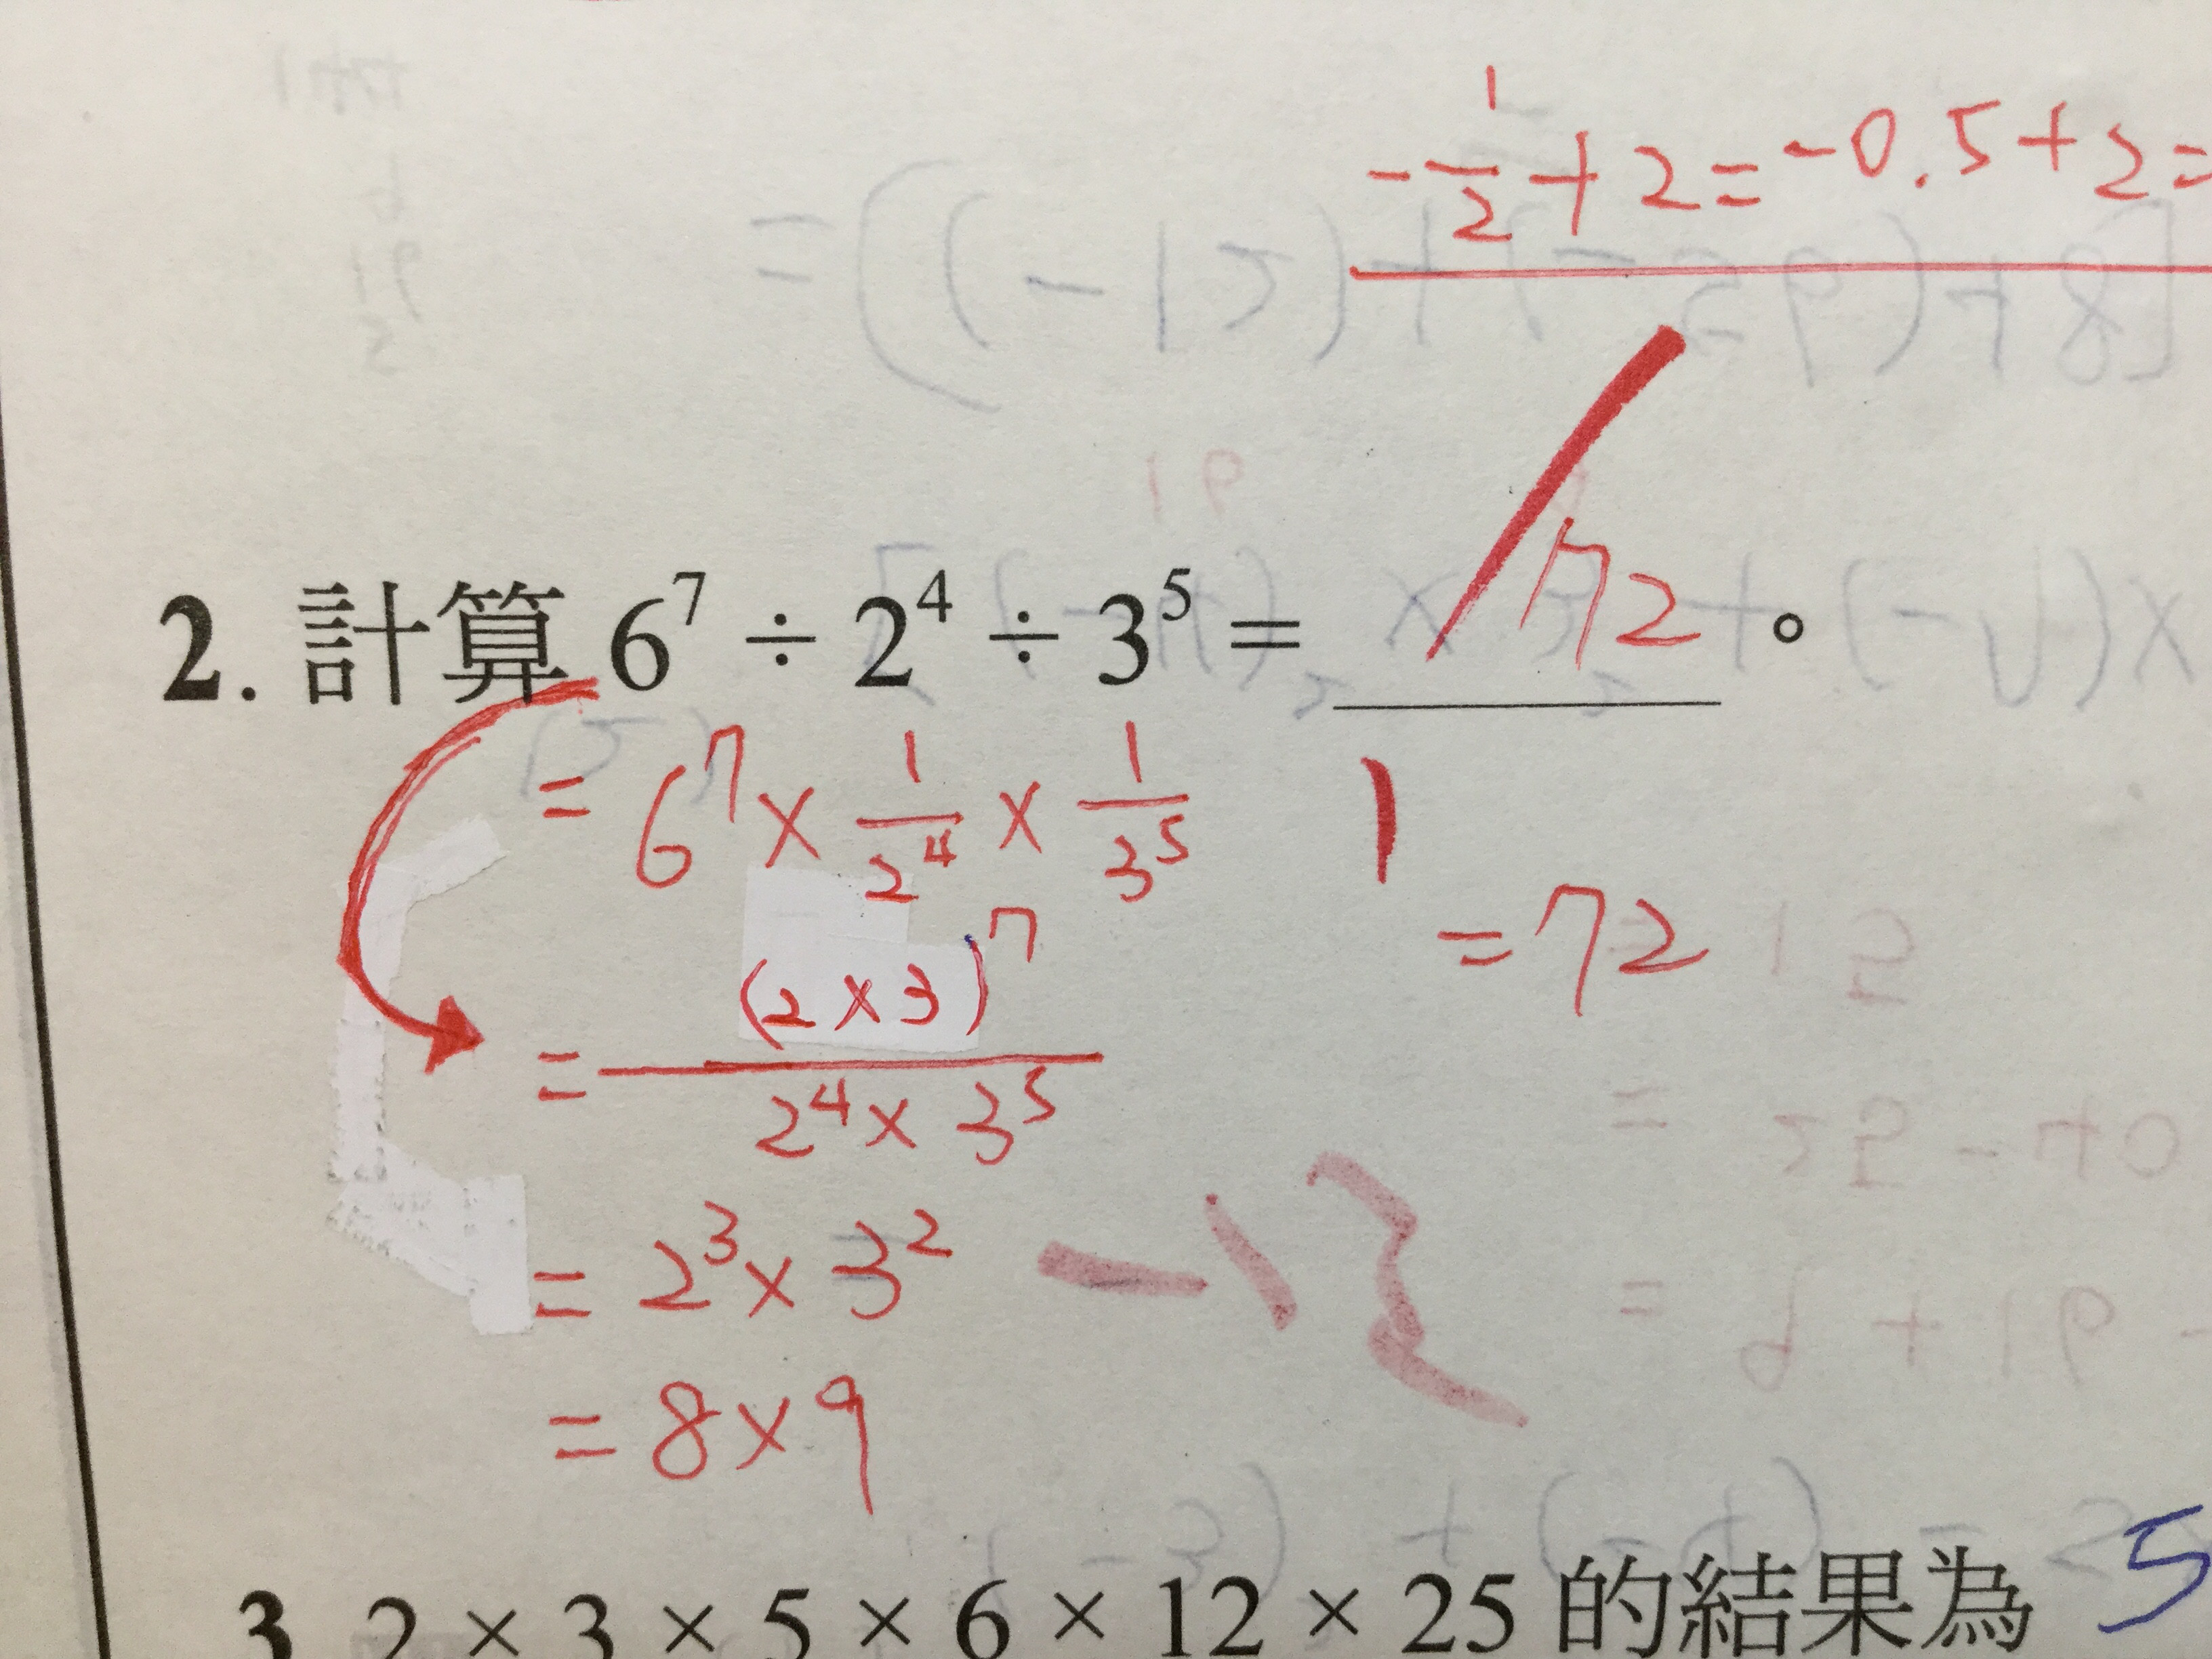 -1/2+2=-0.5+2=
2. 計算 6⁷ ÷ 2⁴ ÷ 3⁵ = 72 。
= 6⁷ × 1/2⁴ × 1/3⁵
= 72
= (2×3)⁷/2⁴×3⁵
= 2³×3²
= 8×9
3. 2 × 3 × 5 × 6 × 12 × 25 的結果為 5